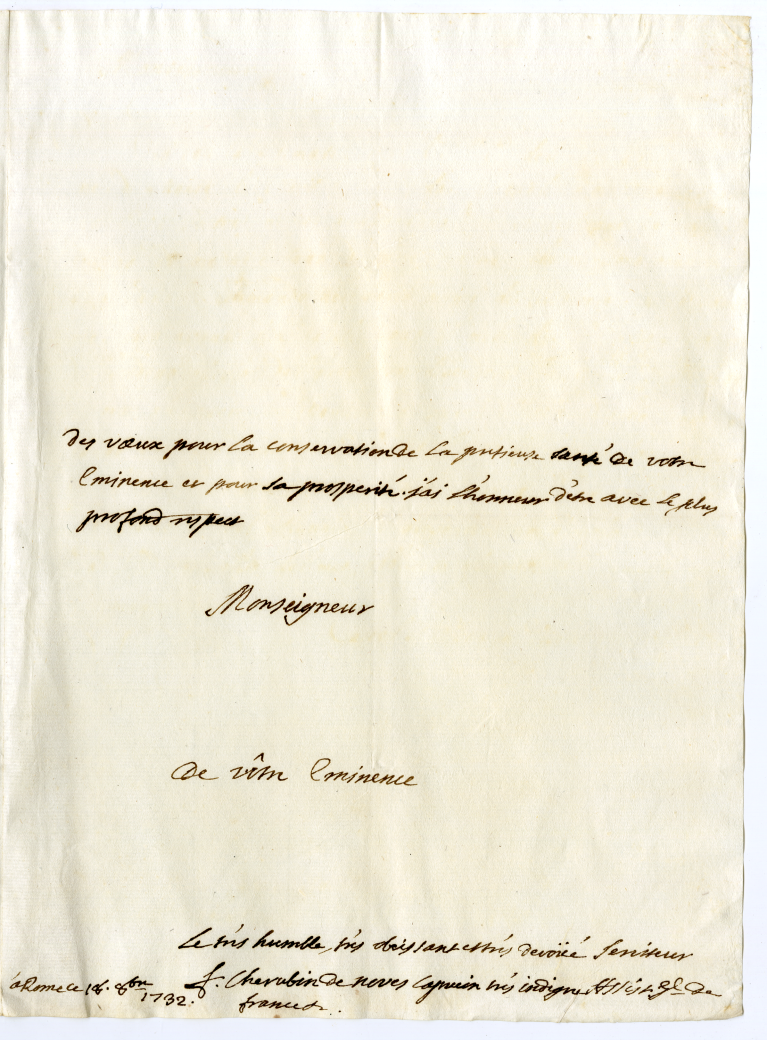 des vœux pour la conservation de la pretieuse santé de votre
Eminence et pour sa prosperité. j'ai l'honneur d'etre avec le plus
profond respect
Monseigneur
De vôtre Eminence
Le trés humble, trés obeissant et trés devoüé serviteur
f. Cherubin de noves Capucin trés indigne Assist. gl. de
france
à Rome ce 18. 8bre 1732.